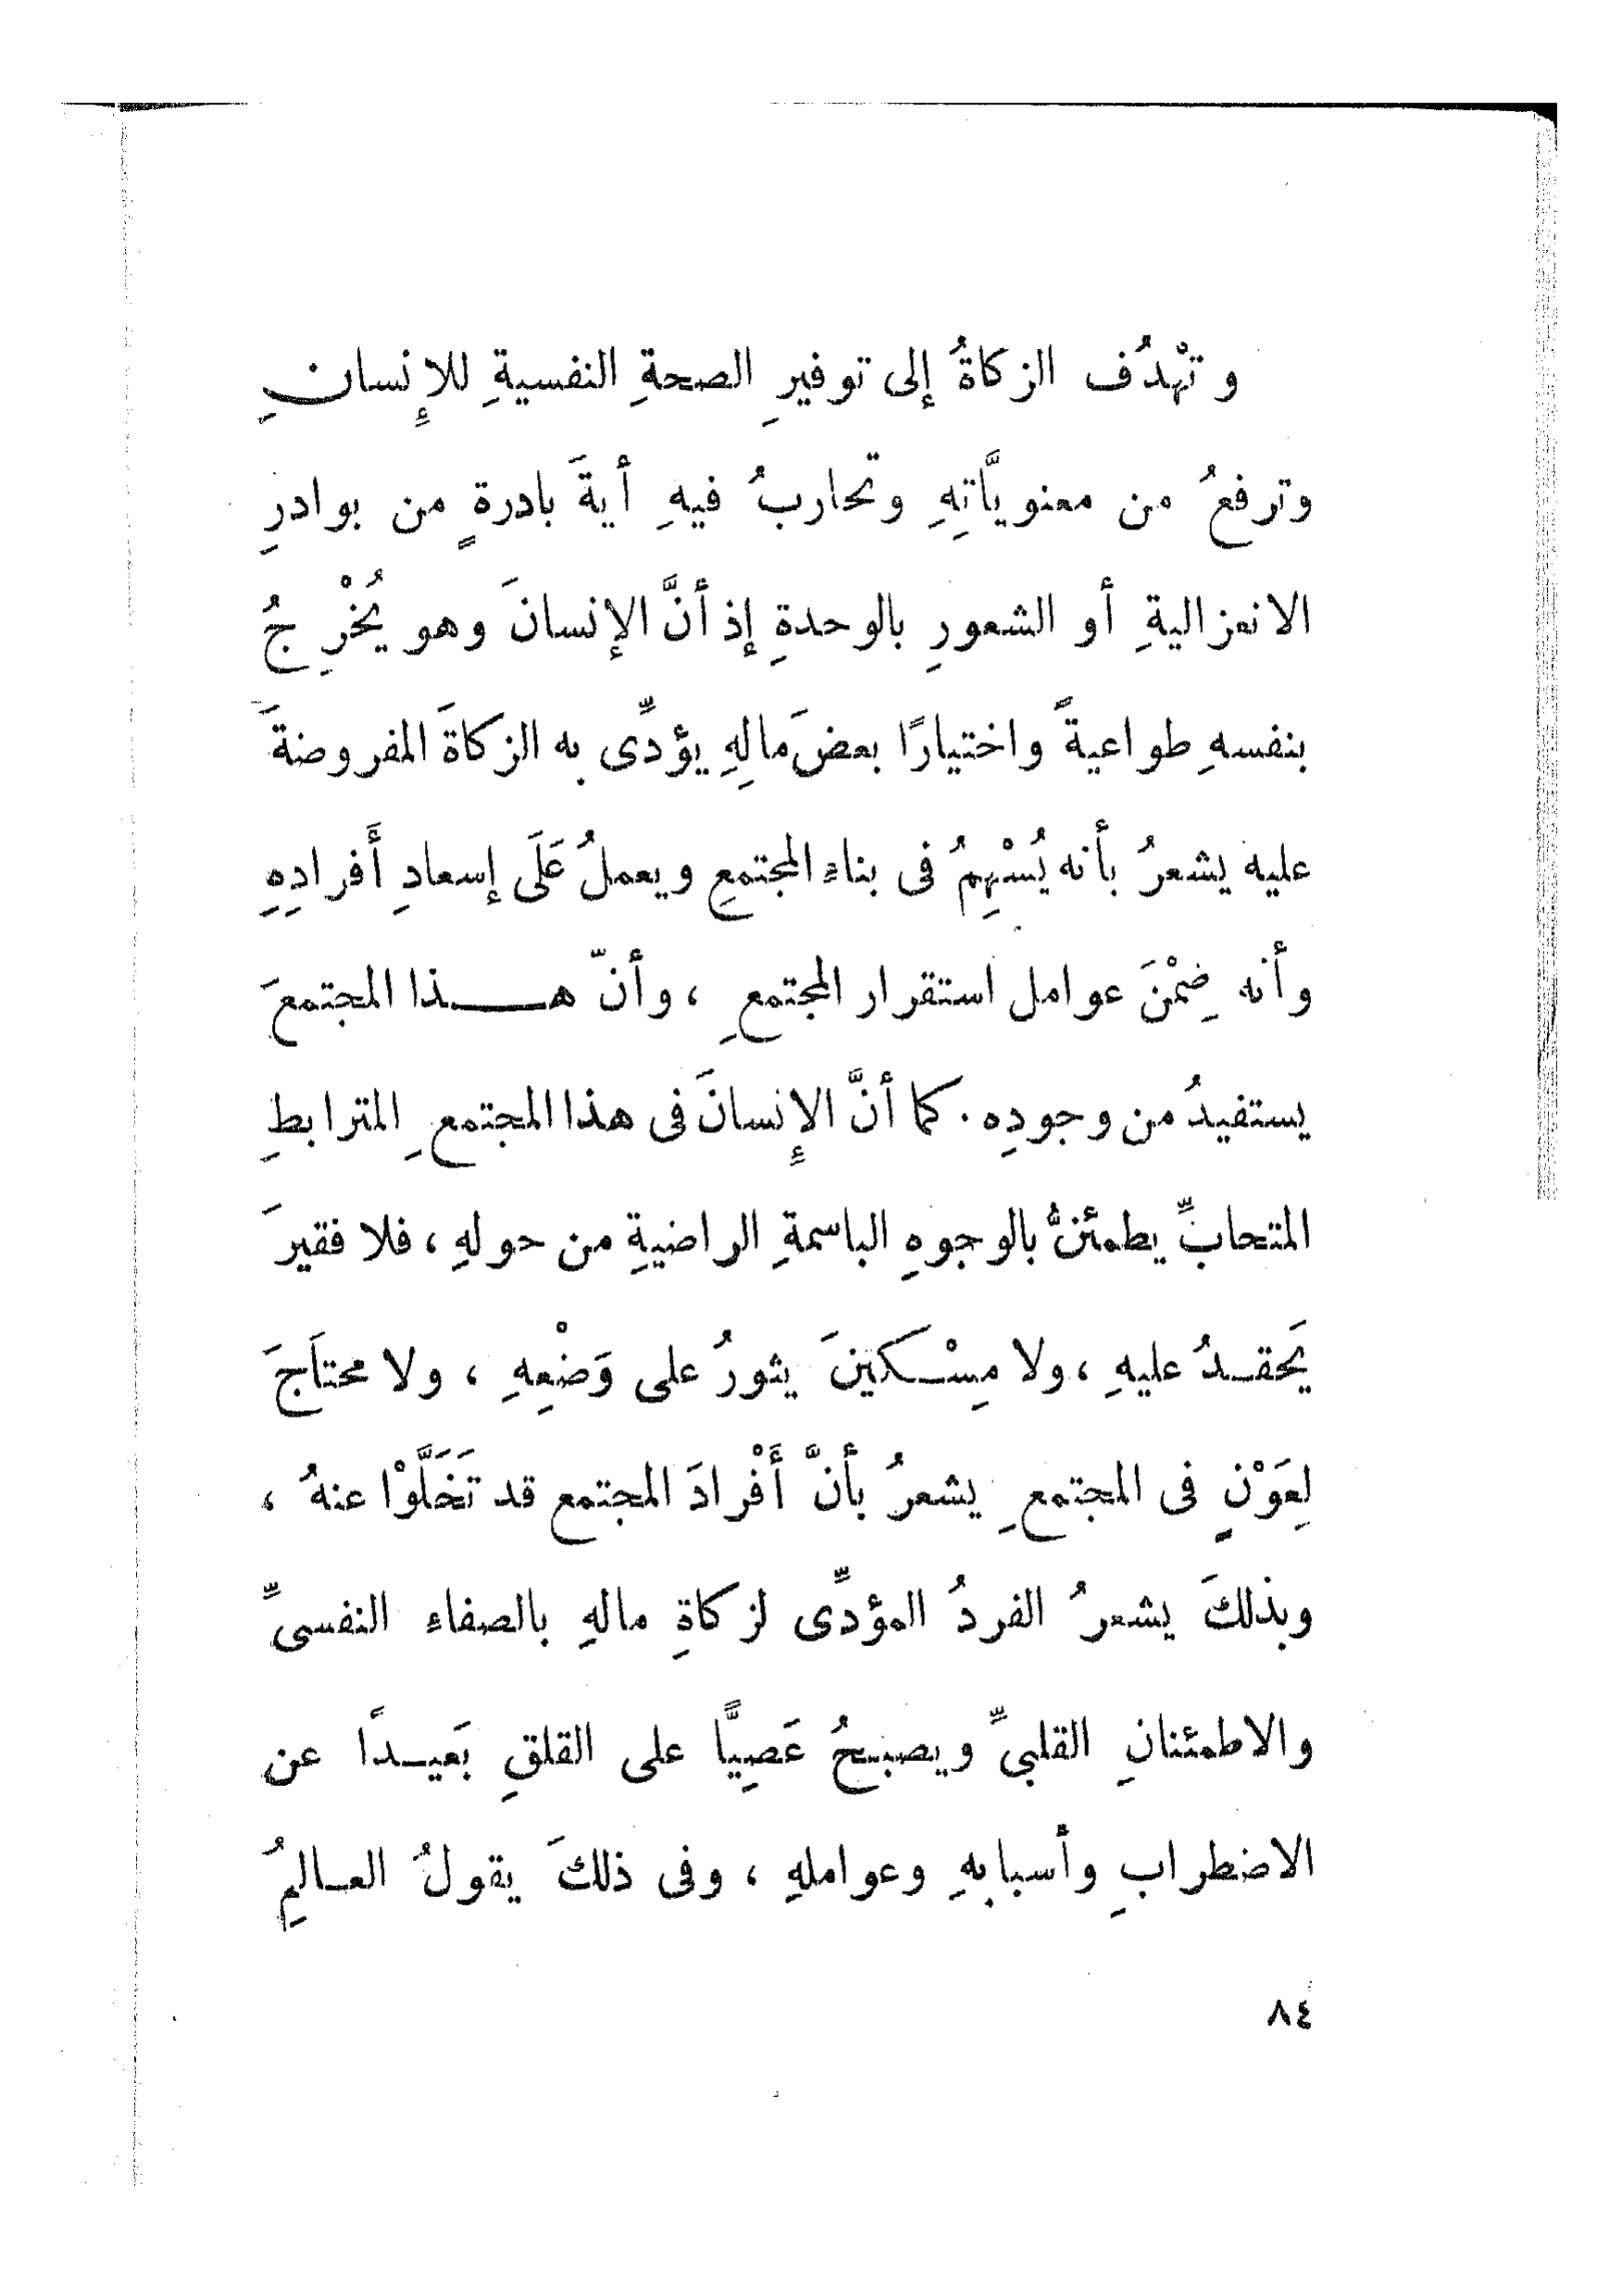 وتهْدُف الزكاةُ إلى توفيرِ الصحةِ النفسيةِ للإِنسانِ
وترفعُ من معنويَّاتِهِ وتحاربُ فيهِ أيةَ بادرةٍ من بوادرِ
الانعزاليةِ أو الشعورِ بالوحدةِ إذ أنَّ الإنسانَ وهو يُخْرِجُ
بنفسهِ طواعيةً واختيارًا بعضَ مالِهِ يؤدِّى به الزكاةَ المفروضةَ
عليه يشعرُ بأنه يُسْهِمُ فى بناءِ المجتمعِ ويعملُ عَلَى إسعادِ أَفرادِهِ
وأنه ضِمْنَ عوامل استقرار المجتمعِ ، وأنّ هـــذا المجتمعَ
يستفيدُ من وجودِه . كما أنَّ الإِنسانَ فى هذا المجتمعِ المترابطِ
المتحابِّ يطمئنُّ بالوجوهِ الباسمةِ الراضيةِ من حولهِ ، فلا فقيرَ
يَحقــدُ عليهِ ، ولا مِسْــكينَ يثورُ على وَضْعِهِ ، ولا محتاَجَ
لِعَوْنٍ فى المجتمعِ يشعرُ بأنَّ أَفْرادَ المجتمع قد تَخَلَّوْا عنهُ ،
وبذلكَ يشعرُ الفردُ المؤدِّى لزكاةِ مالهِ بالصفاء النفسىِّ
والاطمئنانِ القلبىِّ ويصبحُ عَصِيًّا على القلقِ بَعيــدًا عن
الاضطرابِ وأسبابِهِ وعواملهِ ، وفى ذلكَ يقولُ العــالمِ
٨٤